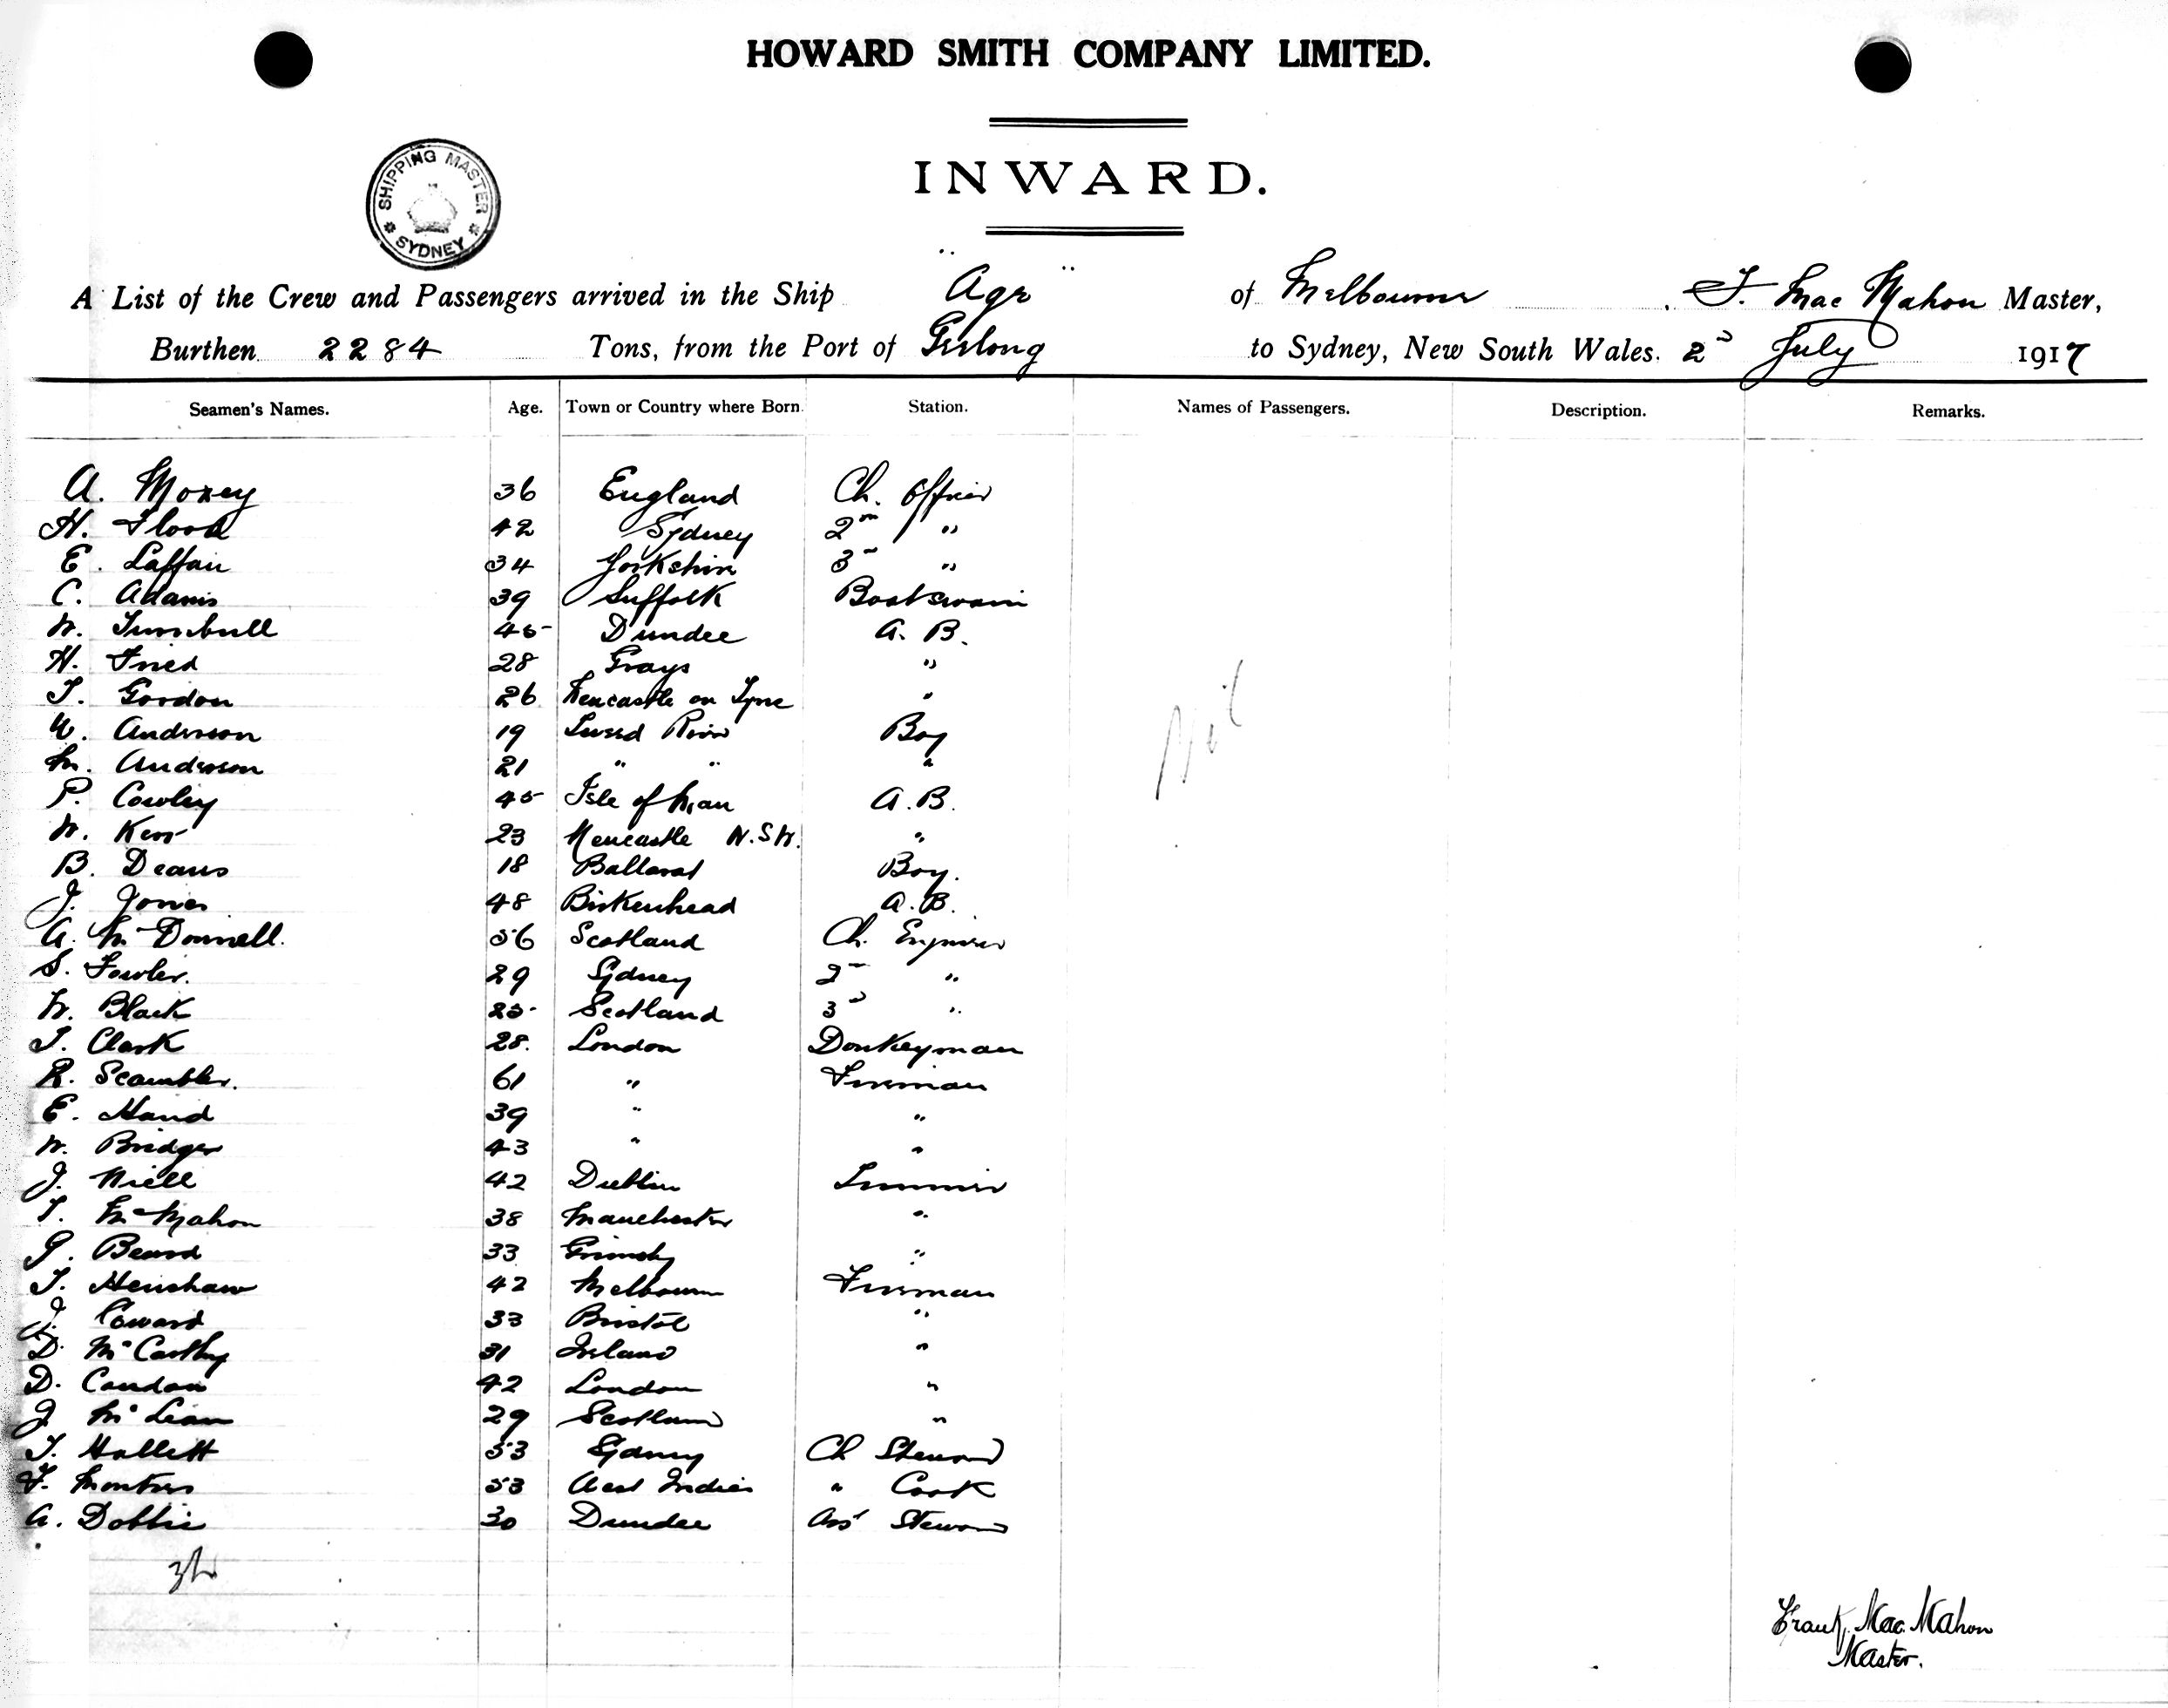 HOWARD SMITH COMPANY LIMITED.
INWARD.
SHIPPING MASTER SYDNEY
A List of the Crew and Passengers arrived in the Ship "Age" of Melbourne, F. Mac Mahon Master,
Burthen 2284 Tons, from the Port of Geelong to Sydney, New South Wales. 2d July 1917
Seamen's Names. Age. Town or Country where Born. Station. Names of Passengers. Description. Remarks.
A. Moxey 36 England Ch. Officer
H. Flood 42 Sydney 2nd "
E. Laffan 34 Yorkshire 3d "
C. Adams 39 Suffolk Boatswain
W. Turnbull 45 Dundee A. B.
H. Fried 28 Grays "
T. Gordon 26 Newcastle on Tyne "
Anderson 19 Tweed River Boy
M. Anderson 21 " " "
P. Cowley 45 Isle of Man A.B.
W. Kerr 23 Newcastle N.S.W. "
B. Deans 18 Ballarat Boy.
J. Jones 48 Birkenhead A.B.
A. McDonnell. 56 Scotland Ch. Engineer
S. Fowler. 29 Sydney 2nd "
W. Black 25 Scotland 3d "
T. Clark 28. London Donkeyman
R. Scambler. 61 " Fireman
E. Hand 39 " "
W. Bridger 43 " "
J. Niell 42 Dublin Trimmer
T. McMahon 38 Manchester "
G. Beard 33 Grimsby "
T. Henshaw 42 Melbourne Fireman
J. Coward 33 Bristol "
D. McCarthy 31 Ireland "
D. Condon 42 London "
J. McLean 29 Scotland "
T. Hallett 53 Sydney Ch Steward
F. 53 West Indies " Cook
A. Dobbie 30 Dundee Ass Steward
Nil
Frank Mac Mahon
Master.